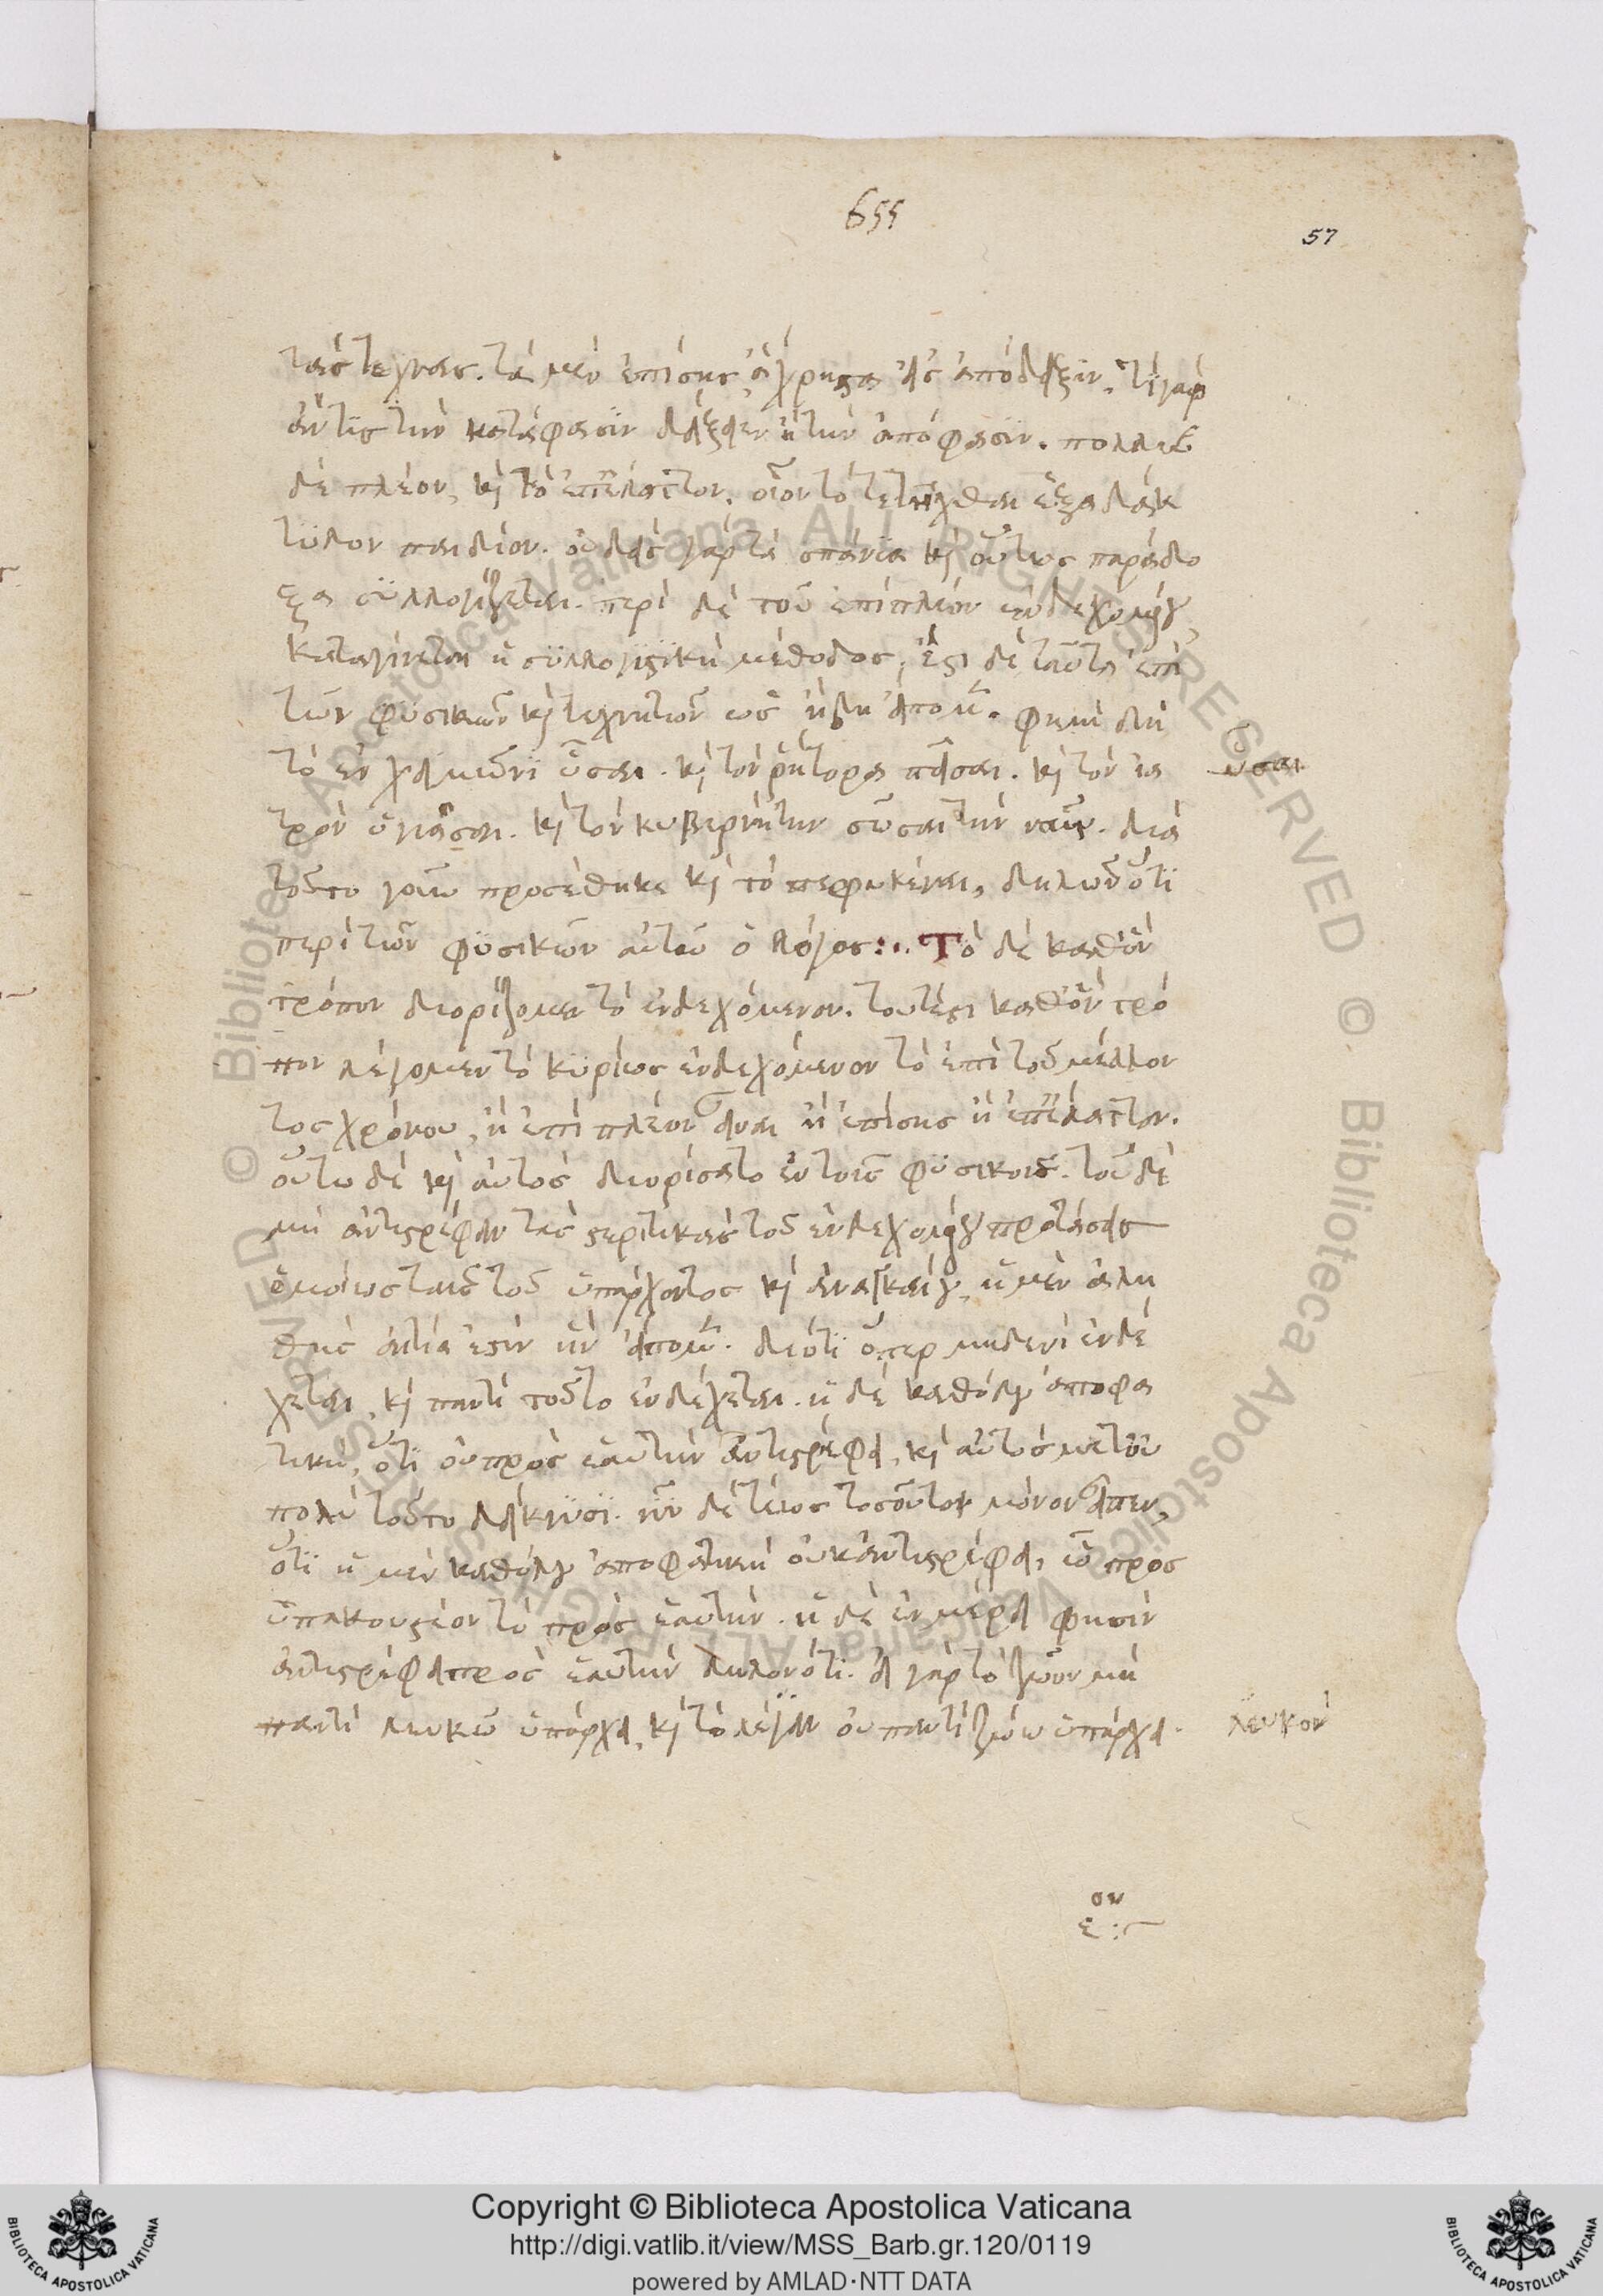 655
57
τὰς τέχνας. τὰ μὲν ἐπίσης ἄχρηστα εἰς ἀπόδειξιν. τί γὰρ
ἄν τις τὴν κατάφασιν δείξειεν ἢ τὴν ἀπόφασιν. πολλῶ
δὲ πλέον, κỳ τὸ ἐπέλαττον. οἷον τὸ τετέχθαι ἑξαδάκ
τυλον παιδίον. οὐδεὶς γὰρ τὰ σπάνια κỳ οὕτως παράδο
ξα συλλογίζεται. περὶ δὲ τοῦ ἐπιπλέον ἐνδεχομένου
καταγίνεται ἡ συλλογιστικὴ μέθοδος, ἔστι δὲ ταῦτα ἐπὶ
τῶν φυσικῶν κỳ τεχνητῶν ὡς ἤδη εἴπομεν. φημὶ δὴ
τὸ ἐν χειμῶνι ὗσαι. κỳ τὸν ῥήτορα πεῖσαι. κỳ τὸν ἰα
ὗσαι
τρὸν ὑγιᾶσαι. κỳ τὸν κυβερνήτην σῶσαι τὴν ναῦν. διὰ
τοῦτο γοῦν προσέθηκε κỳ τὸ πεφυκέναι, δηλῶν ὅτι
περὶ τῶν φυσικῶν αὐτοῦ ὁ λόγος:.. Τὸ δὲ καθ' ὃν
τρόπον διορίζομεν τὸ ἐνδεχόμενον. τουτέστι καθ' ὃν τρό
πον λέγομεν τὸ κυρίως ἐνδεχόμενον τὸ ἐπὶ τοῦ μέλλον
τος χρόνου, ἢ ἐπὶ πλέον εἶναι ἢ ἐπίσης ἢ ἐπέλαττον.
οὕτω δὲ κỳ αὐτὸς διωρίσατο ἐν τοῖς φυσικοῖς. τοῦ δὲ
μὴ ἀντιστρέφειν τὰς στερητικὰς τοῦ ἐνδεχομένου προτάσεις
ὁμοίως ταῖς τοῦ ὑπάρχοντος κỳ ἀναγκαίου, ἡ μὲν ἀλη
θὴς αἰτία ἐστὶν ἣν εἴπομεν. διότι ὅπερ μηδενὶ ἐνδέ
χεται, κỳ παντὶ τοῦτο ἐνδέχεται. ἡ δὲ καθόλου ἀποφα
τικὴ, ὅτι οὐ πρὸς ἑαυτὴν ἀντιστρέφει, κỳ αὐτὸς μετ' οὐ
πολὺ τοῦτο δείκνυσι. νῦν δὲ τέως τοσοῦτον μόνον εἶπεν,
ὅτι ἡ μὲν καθόλου ἀποφατικὴ οὐκ ἀντιστρέφει, ὧ προς
ὑπακουστέον τὸ πρὸς ἑαυτήν. ἡ δὲ ἐν μέρει φησὶν
ἀντιστρέφει πρὸς ἑαυτὴν δηλονότι. εἰ γὰρ τὸ ζῶον μὴ
παντὶ λευκῶ ὑπάρχει, κỳ τὸ λέγειν οὐ παντὶ ζώω ὑπάρχει.
λευκὸν
ον
ε :~
Copyright © Biblioteca Apostolica Vaticana
http://digi.vatlib.it/view/MSS_Barb.gr.120/0119
powered by AMLAD·NTT DATA